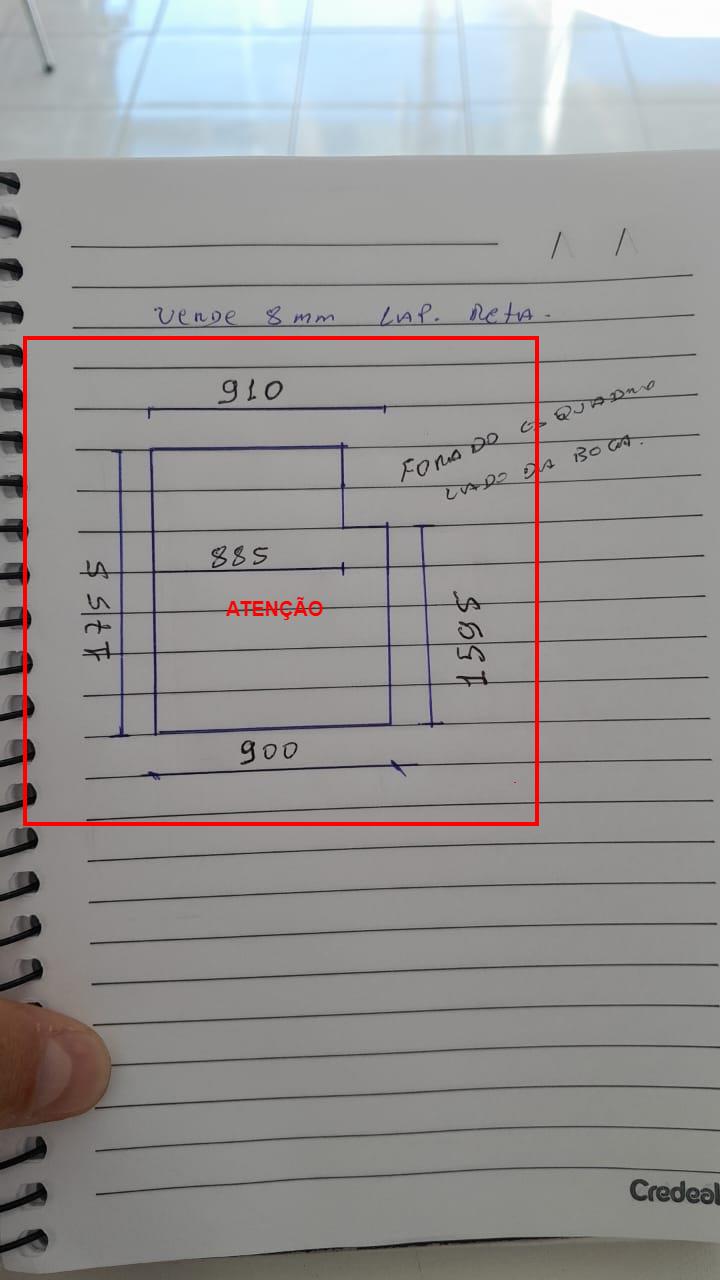 / /
VERDE 8mm LAP. RETA.
910
FORA DO ESQUADRO
LADO DA BOCA.
885
1755
ATENÇÃO
1595
900
Credeal